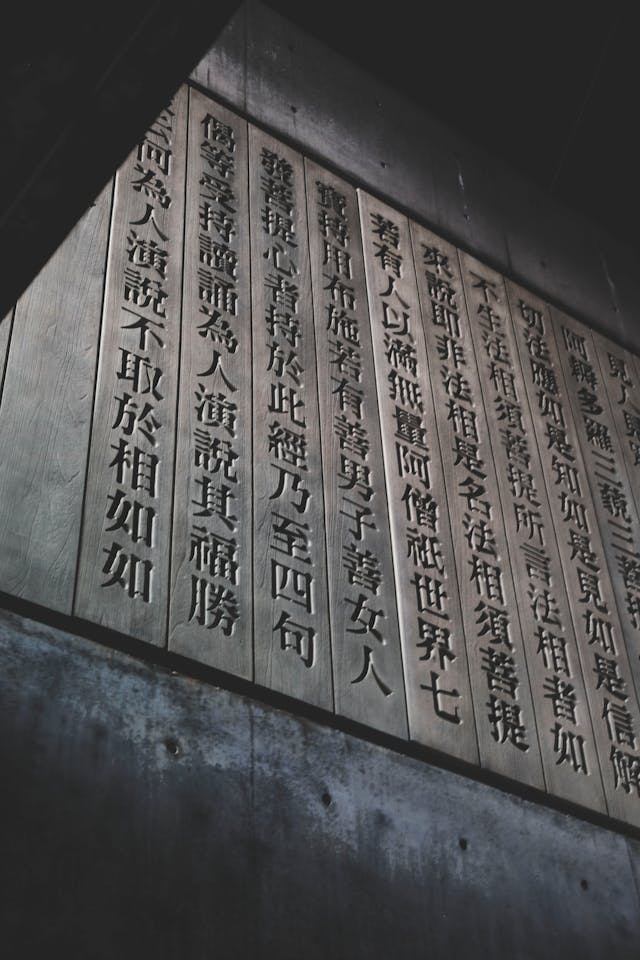 見人見
阿耨多羅三藐三菩提
切法應如是知如是見如是信解
不生法相須菩提所言法相者如
來說即非法相是名法相須菩提
若有人以滿無量阿僧祇世界七
寶持用布施若有善男子善女人
發菩提心者持於此經乃至四句
偈等受持讀誦為人演說其福勝
云何為人演說不取於相如如